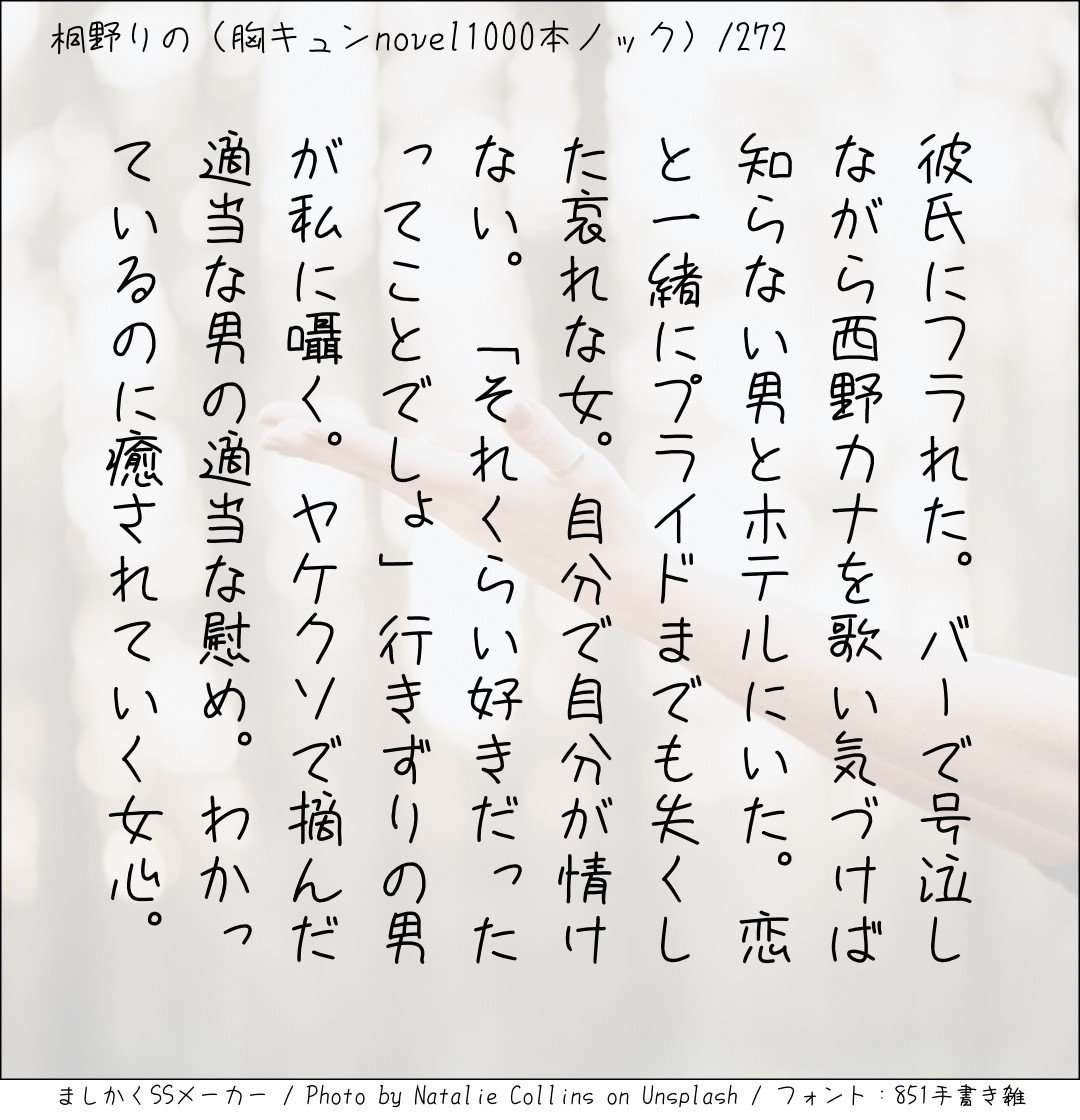 桐野りの（胸キュンnovel1000本ノック）/272
彼氏にフラれた。　バーで号泣し
ながら西野カナを歌い気づけば
知らない男とホテルにいた。　恋
と一緒にプライドまでも失くし
た哀れな女。　自分で自分が情け
ない。　「それくらい好きだった
ってことでしょ」行きずりの男
が私に囁く。　ヤケクソで摘んだ
適当な男の適当な慰め。　わかっ
ているのに癒されていく女心。
ましかくSSメーカー / Photo by Natalie Collins on Unsplash / フォント：851手書き雑